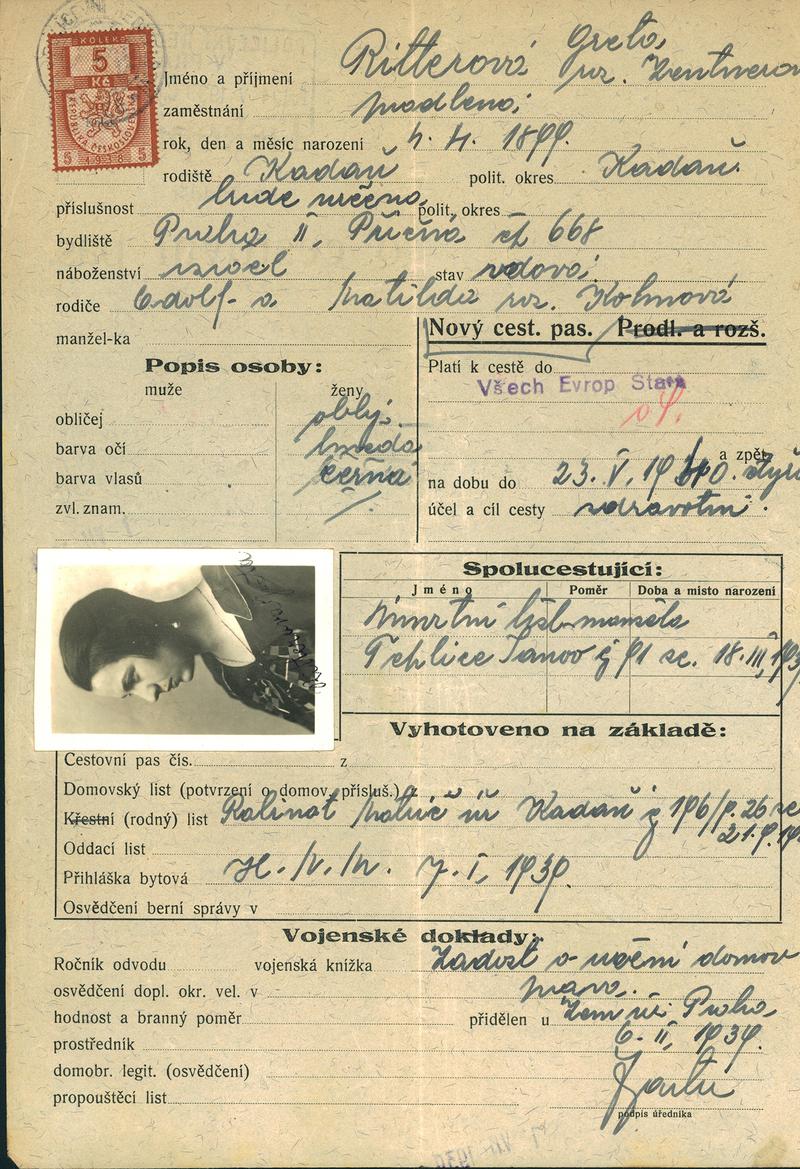 KOLEK
5
Kč
REPUBLIKA ČESKOSLOVENSKÁ
5 1938 5
Jméno a příjmení Ritterová Greta,
roz.
zaměstnání
rok, den a měsíc narození 4. 4. 1899.
rodiště Kadaň polit. okres Kadaň.
příslušnost bude určena polit. okres
bydliště Praha II, Příčná čp 668
náboženství israel stav vdova
rodiče Adolf a Matilda roz. Kohnová
manžel-ka
Nový cest. pas. Prodl. a rozš.
Popis osoby:
muže ženy
Platí k cestě do
Všech Evrop Států
obličej oblý.
barva očí hnědá
barva vlasů černá
zvl. znam. /.
a zpět
na dobu do 23. V. 1940.
účel a cíl cesty zdravotní.
Spolucestující:
Jméno Poměr Doba a místo narození
Úmrtní list manžela
Teplice Šanov 18. III.
Vyhotoveno na základě:
Cestovní pas čís. z
Domovský list (potvrzení o domov. přísluš.) z
Křestní (rodný) list Rabinát Kadaň
Oddací list
Přihláška bytová 7. I. 1939.
Osvědčení berní správy v
Vojenské doklady:
Ročník odvodu vojenská knížka Žádost o určení domov
osvědčení dopl. okr. vel. v práva.
hodnost a branný poměr přidělen u Zem. úř. Praha,
prostředník 6. II. 1939.
domobr. legit. (osvědčení)
propouštěcí list
podpis úředníka